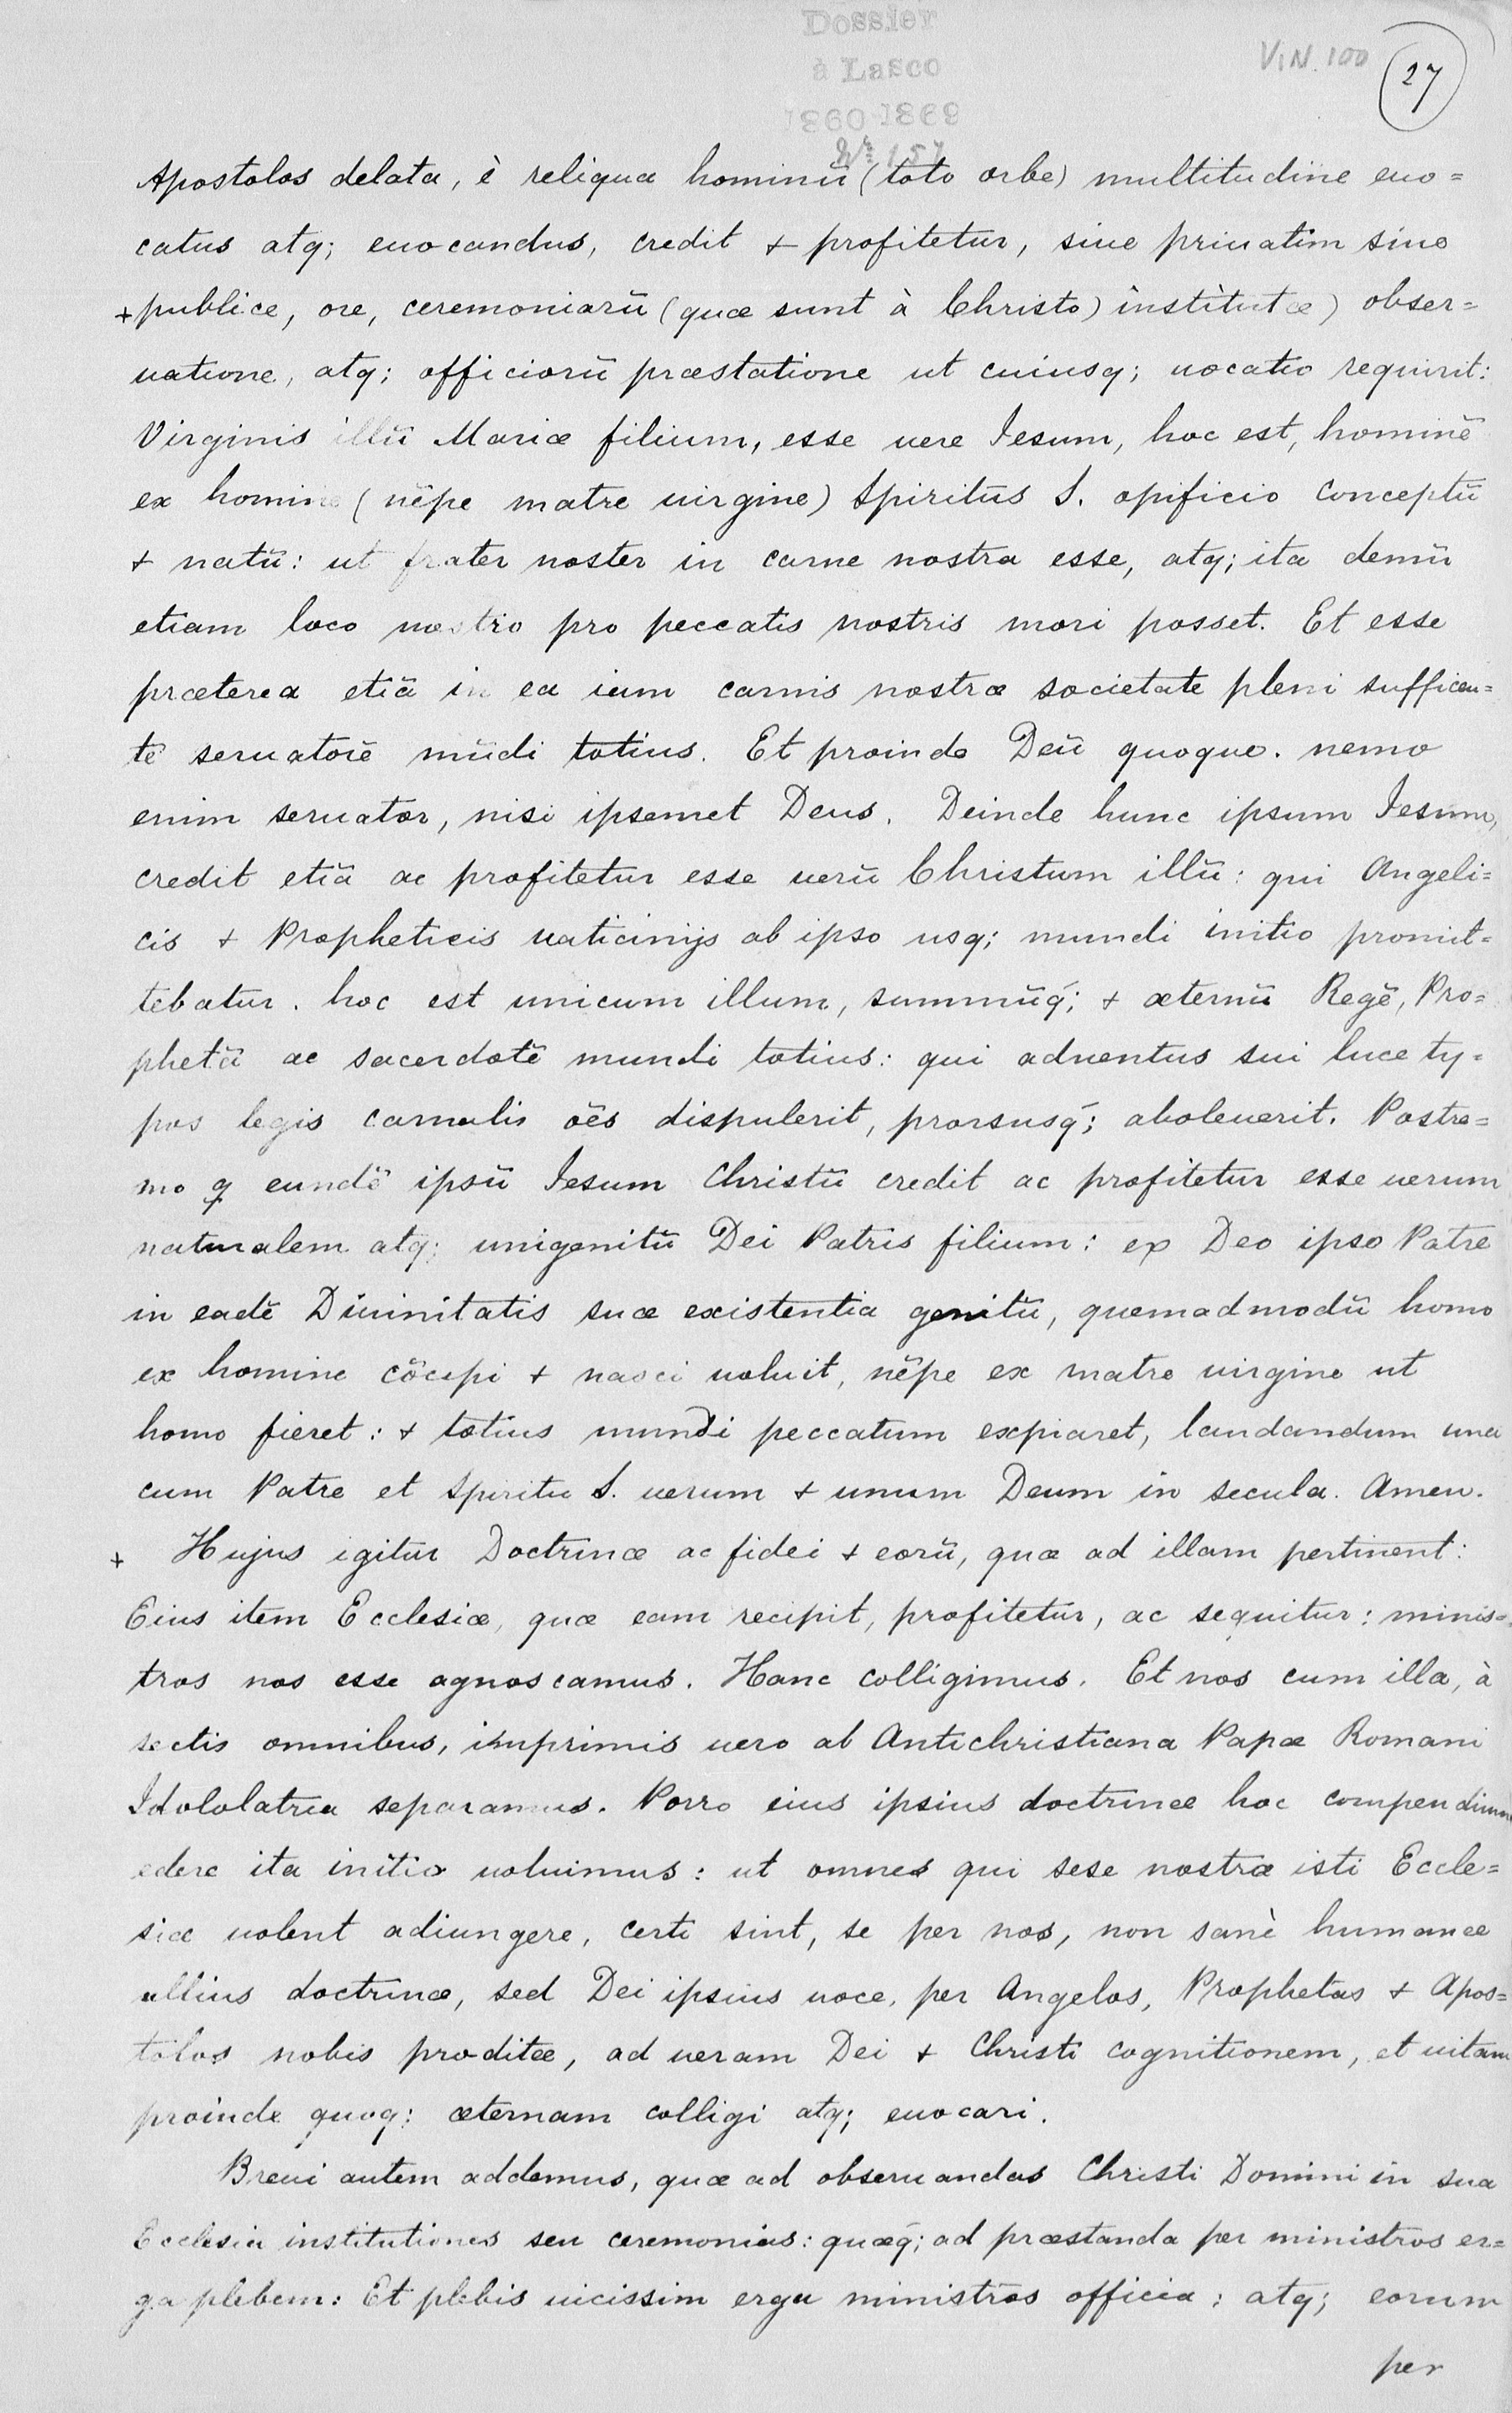 Dossier
à Lasco
1860-1869
Nº 157
VIN. 100
27
Apostolos delata, è reliqua hominū (toto orbe) multitudine euo=
catus atq; euocandus, credit & profitetur, siue priuatim siue
+ publice, ore, ceremoniarū (quæ sunt à Christo) institutæ) obser=
uatione, atq; officiorū præstatione ut cuiusq; uocatio requirit:
Virginis illū Mariæ filium, esse uere Iesum, hoc est, hominē
ex homine (nēpe matre uirgine) Spiritus S. opificio conceptū
& natū: ut frater noster in carne nostra esse, atq; ita demū
etiam loco nostro pro peccatis nostris mori posset. Et esse
præterea etiā in ea iam carnis nostræ societate pleni sufficien=
tē seruatorē mūdi totius. Et proinde Deū quoque. nemo
enim seruator, nisi ipsemet Deus. Deinde hunc ipsum Iesum,
credit etiā ac profitetur esse uerū Christum illū: qui Angeli=
cis & Propheticis uaticinijs ab ipso usq; mundi initio promit=
tebatur. hoc est unicum illum, summūq́; & æternū Regē, Pro=
phetā ac sacerdotē mundi totius: qui aduentus sui luce ty=
pos legis carnalis oēs dispulerit, prorsusq́; aboleuerit. Postre=
mo q eundē ipsū Iesum Christū credit ac profitetur esse uerum
naturalem atq; unigenitū Dei Patris filium: ex Deo ipso Patre
in eadē Diuinitatis suæ existentia genitū, quemadmodū homo
ex homine cōcipi & nasci uoluit, nēpe ex matre uirgine ut
homo fieret: & totius mundi peccatum expiaret, laudandum una
cum Patre et Spiritu S. uerum & unum Deum in secula. Amen.
+ Hujus igitur Doctrinæ ac fidei & eorū, quæ ad illam pertinent:
Eius item Ecclesiæ, quæ eam recipit, profitetur, ac sequitur: minis=
tros nos esse agnoscamus. Hanc colligimus. Et nos cum illa, à
sectis omnibus, imprimis uero ab Antichristiana Papæ Romani
Idololatria separamus. Porro eius ipsius doctrinæ hoc compendium
edere ita initio uoluimus: ut omnes qui sese nostræ isti Eccle=
siæ uolent adiungere, certi sint, se per nos, non sanè humanæ
ullius doctrinæ, sed Dei ipsius uoce, per Angelos, Prophetas & Apos=
tolos nobis proditæ, ad ueram Dei & Christi cognitionem, et uitam
proinde quoq: æternam colligi atq; euocari.
Breui autem addemus, quæ ad obseruandas Christi Domini in sua
Ecclesia institutiones seu ceremonias: quæq́; ad præstanda per ministros er=
ga plebem: Et plebis uicissim erga ministros officia: atq; eorum
per